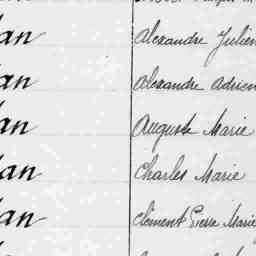 an Alexandre Julien
an Alexandre Adrien
an Auguste Marie
an Charles Marie
an Clément Pierre Marie